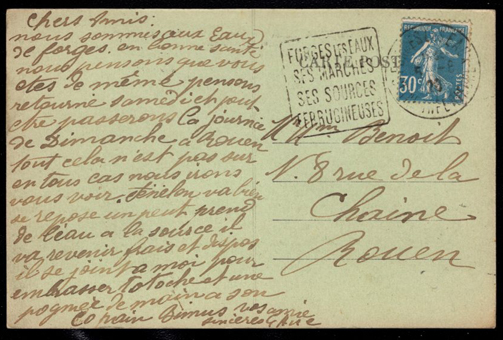 chers Amis.
nous sommes aux Eaux
de forges. en bonne santé
nous pensons que vous
etes de même, pensons
retourné samedi ch peut
etre passerons La journée
de Dimanche a Rouen
tout cela n'est pas sur
en tous cas nous irons
vous voir. va bien
se repose un peut prend
de l'éau a la source il
va revenir frais et dispos
il se joint a moi pour
embrasser et une
pognée de main a son
Copain vos amie
sincères
FORGES LES EAUX
SES MARCHÉS
SES SOURCES
FERRUGINEUSES
CARTE POST
REPUBLIQUE FRANÇAISE
30c
POSTES
Mdm Benoit
N. 8 rue de la
Chaine
Rouen